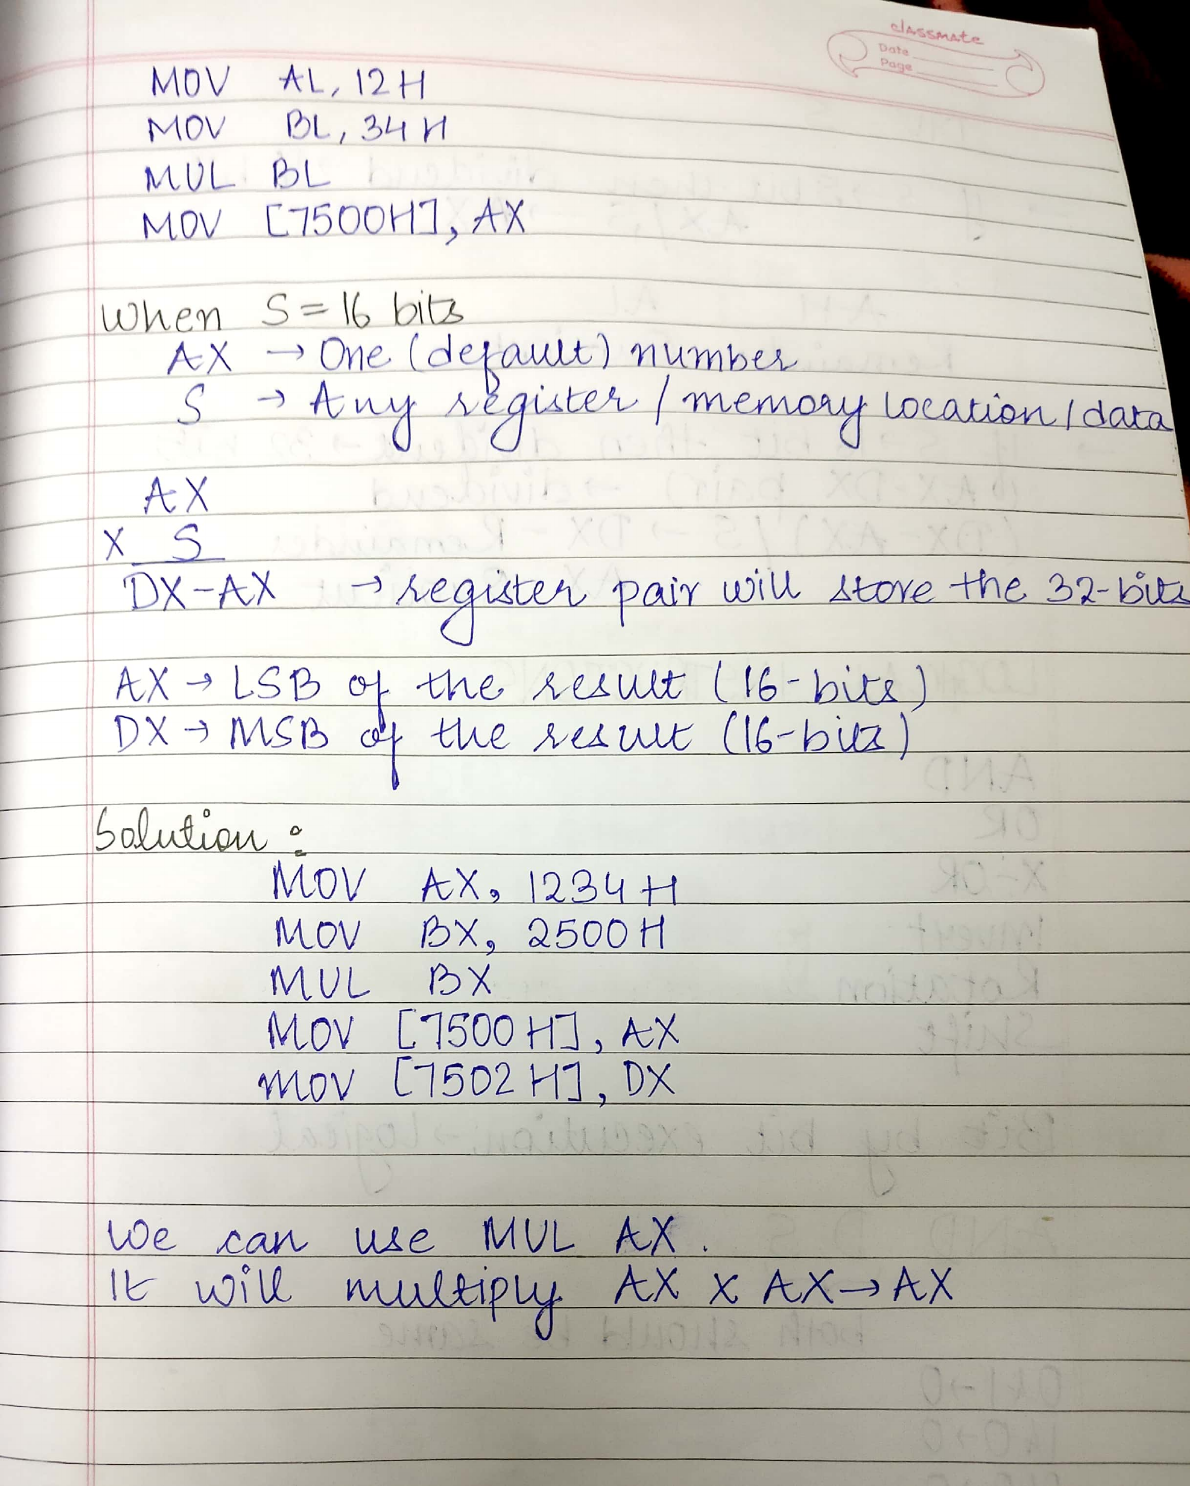 classmate
Date
Page
MOV AL, 12H
MOV BL, 34H
MUL BL
MOV [7500H], AX
When S = 16 bits
AX → One (default) number
S → Any register / memory location / data
AX
X S
DX-AX → register pair will store the 32-bits
AX → LSB of the result (16-bits)
DX → MSB of the result (16-bits)
Solution :
MOV AX, 1234H
MOV BX, 2500H
MUL BX
MOV [7500H], AX
MOV [7502H], DX
We can use MUL AX.
It will multiply AX X AX → AX